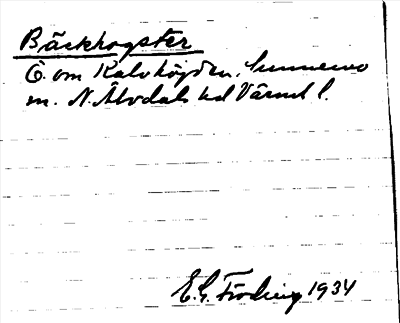 Bäckhogster
Ö. om Kalvhöjden, Sunnemo
m. N. Älvdals hd Värml l.
E. G. Fröding 1934